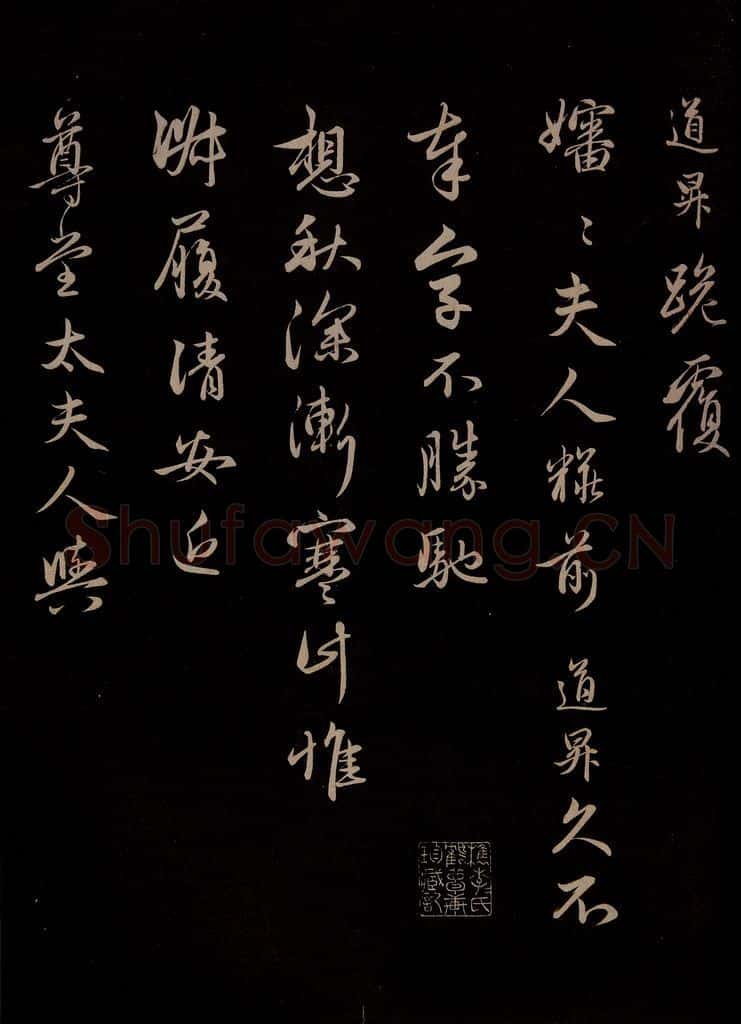 道昇跪覆
嬸〻夫人糚前 道昇久不
奉字不勝馳
想秋深漸寒計惟
淑履清安近
尊堂太夫人與
Shufawang.CN